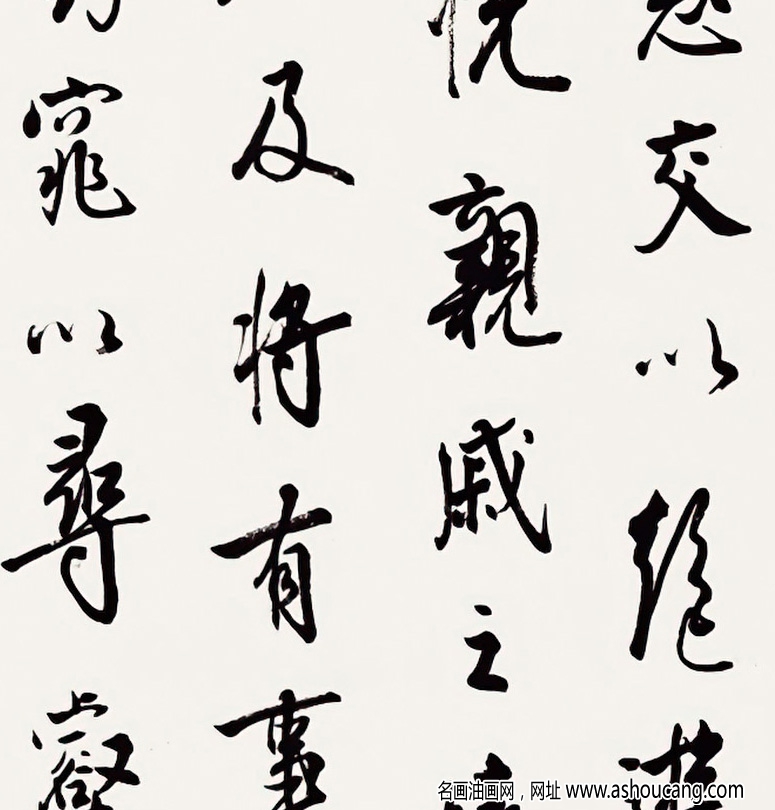 息交以絕遊
悅親戚之
及將有事
窈以尋壑
名画油画网，网址 www.ashoucang.com